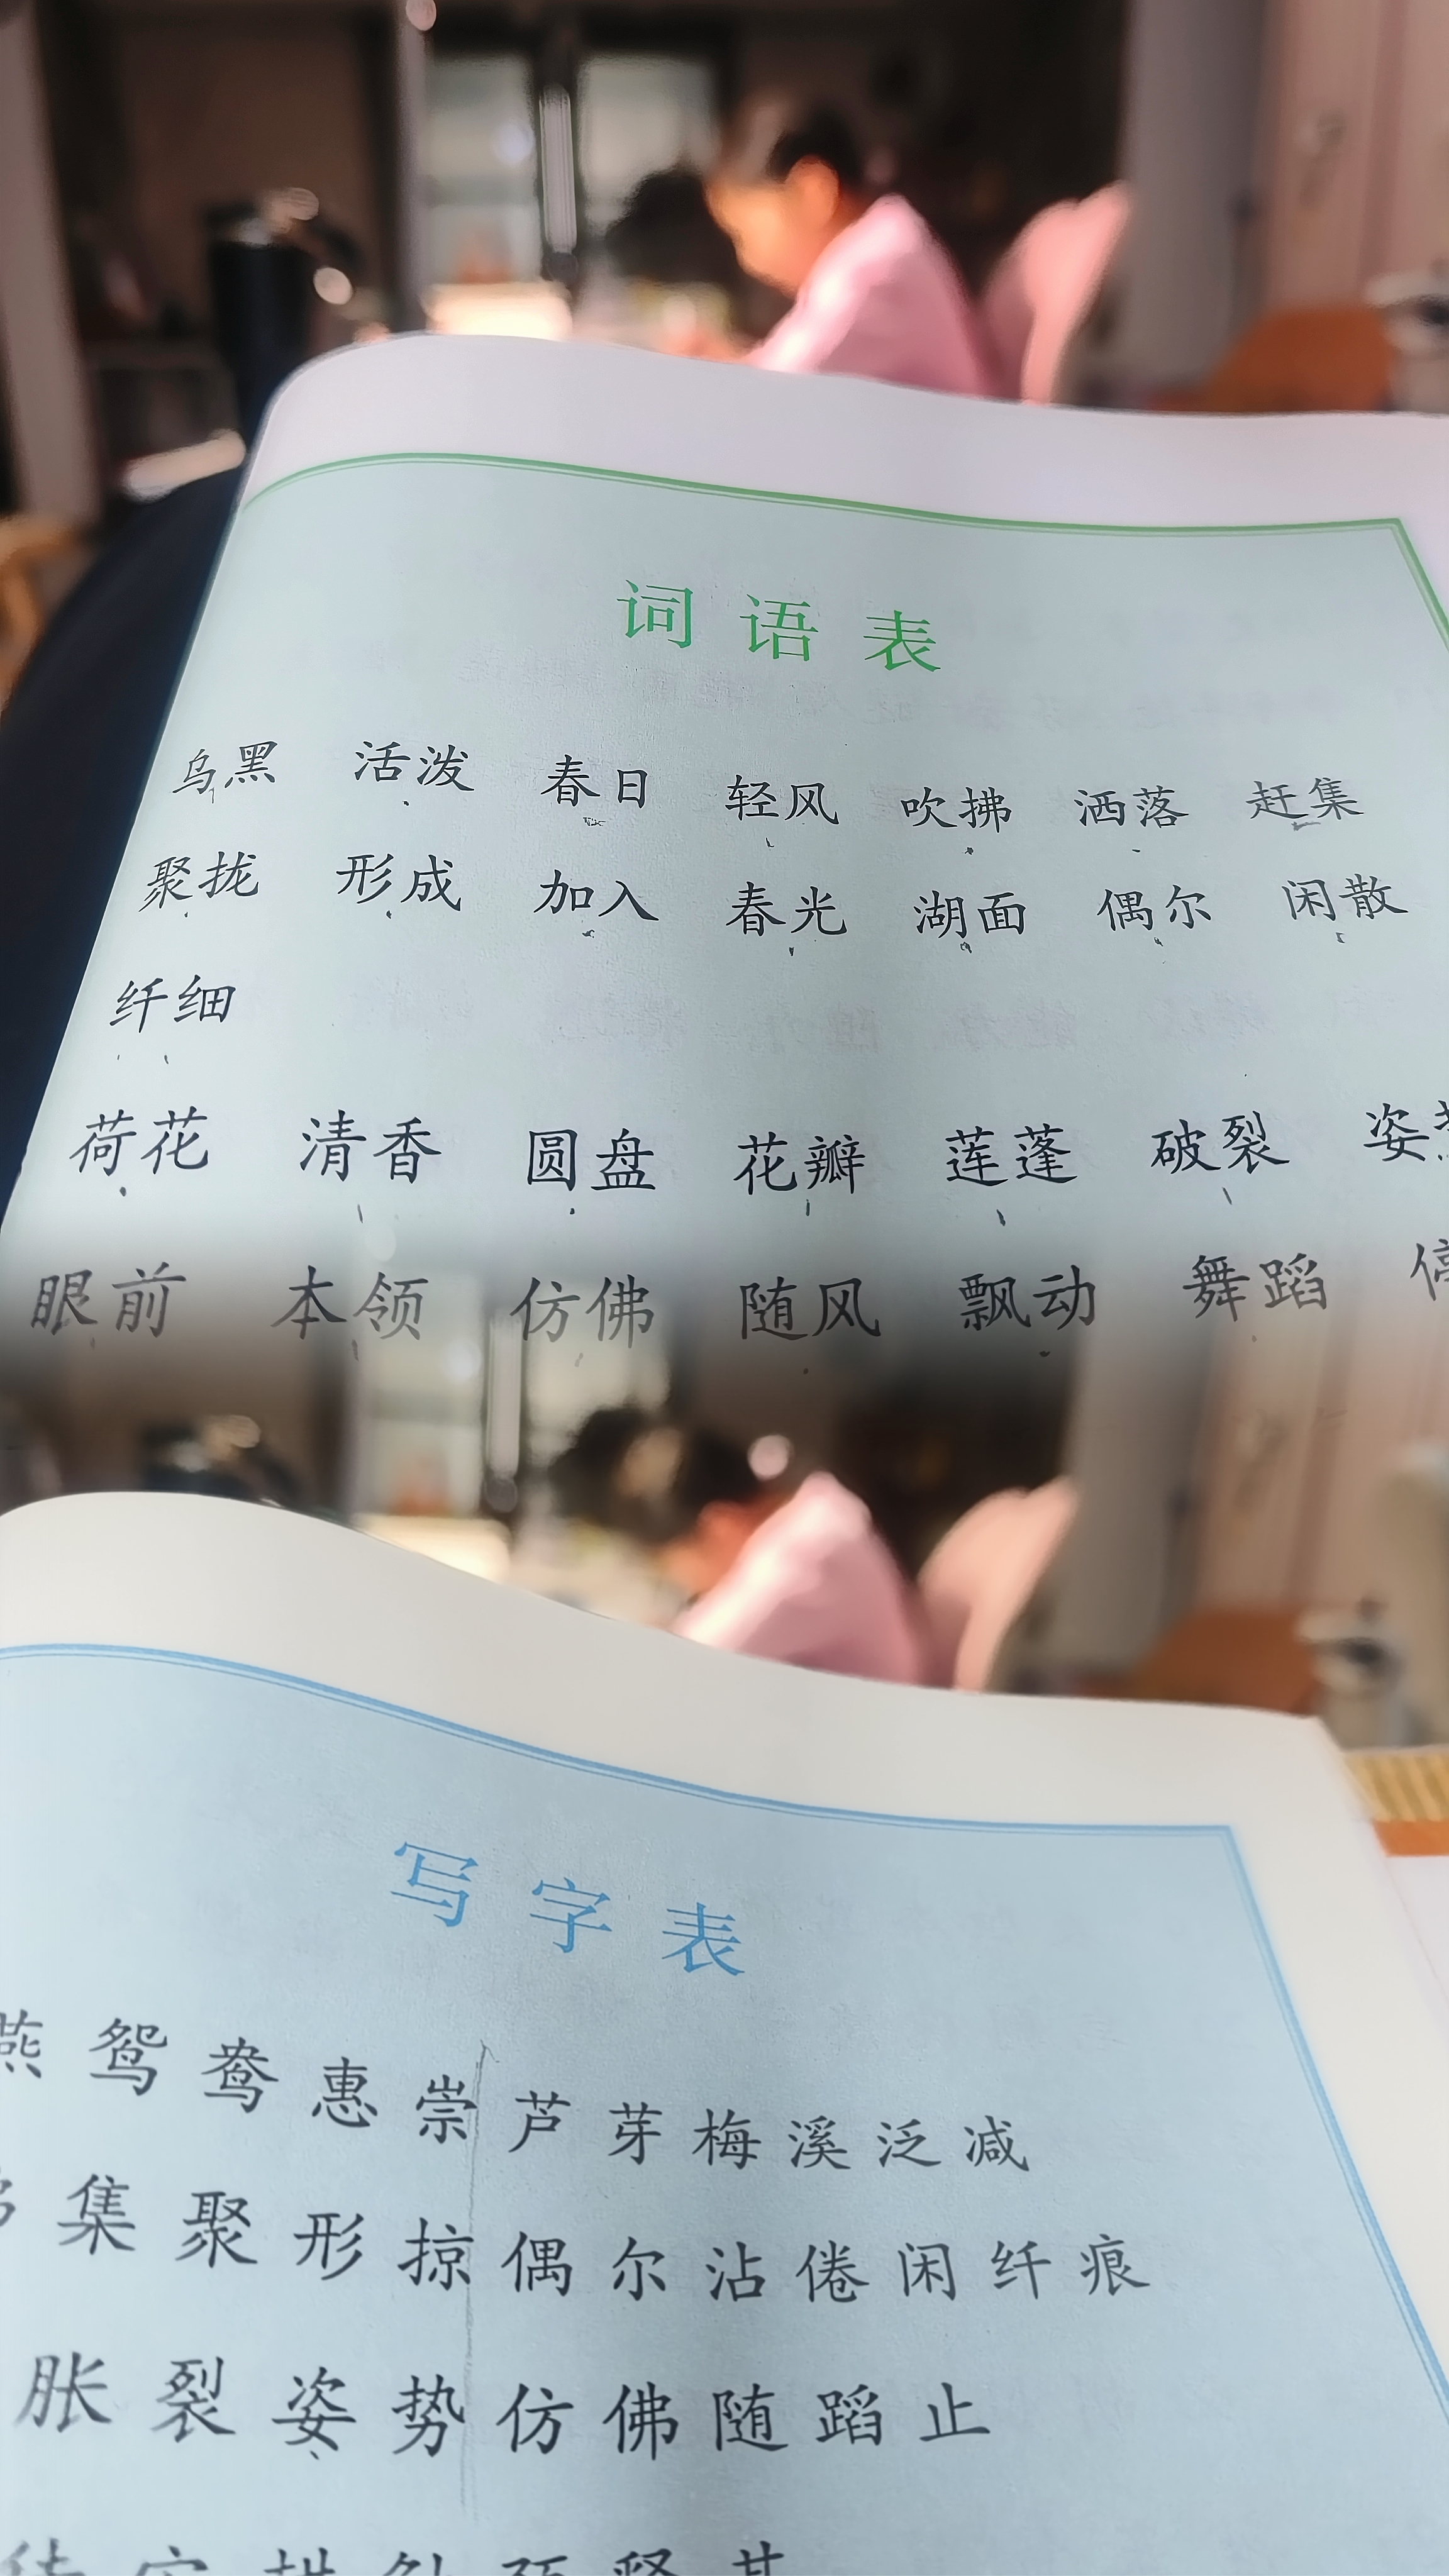 词语表
乌黑 活泼 春日 轻风 吹拂 洒落 赶集
聚拢 形成 加入 春光 湖面 偶尔 闲散
纤细
荷花 清香 圆盘 花瓣 莲蓬 破裂 姿
眼前 本领 仿佛 随风 飘动 舞蹈
写字表
燕 鸳 鸯 惠 崇 芦 芽 梅 溪 泛 减
集 聚 形 掠 偶 尔 沾 倦 闲 纤 痕
胀 裂 姿 势 仿 佛 随 蹈 止